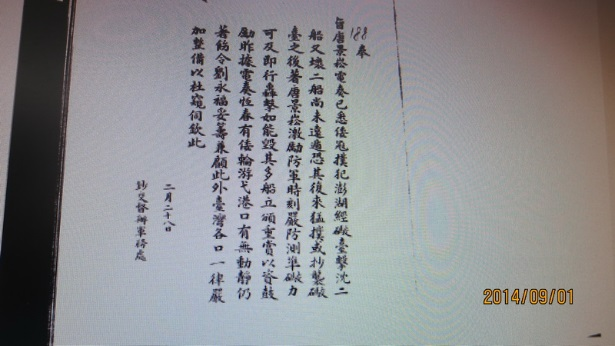 188
奉
旨唐景崧電奏已悉倭寇撲犯澎湖經礮臺擊沈二
船又壞二船尚未遠遁恐其復來猛撲或抄襲礮
臺之後著唐景崧激勵防軍時刻嚴防測準礮力
可及即行轟擊如能毀其多船立頒重賞以資鼓
勵昨據電奏恆春有倭輪游弋港口有無動靜仍
著飭令劉永福妥籌兼顧此外臺灣各口一律嚴
加整備以杜窺伺欽此
二月二十八日
鈔交督辦軍務處
2014/09/01